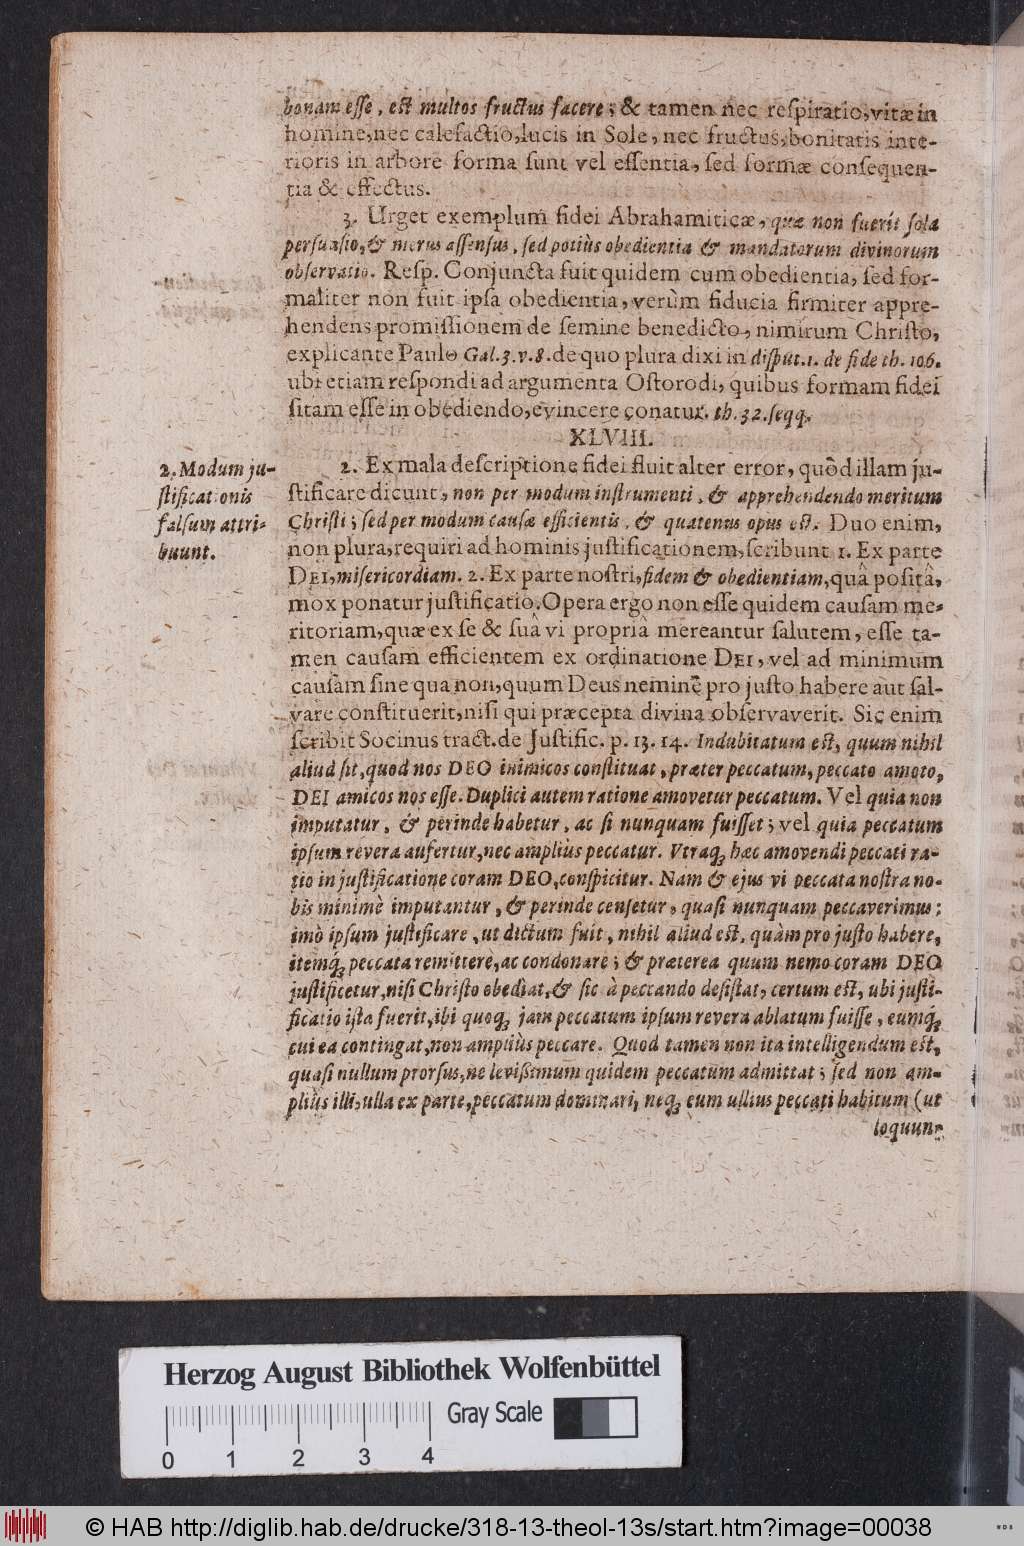 bonam eſſe, eſt multos fructus facere; & tamen nec reſpiratio, vitæ in
homine, nec calefactio, lucis in Sole, nec fructus, bonitatis inte-
rioris in arbore forma ſunt vel eſſentia, ſed formæ conſequen-
tia & effectus.
3. Urget exemplum fidei Abrahamiticæ, quæ non fuerit ſola
perſuaſio, & merus aſſenſus, ſed potiùs obedientia & mandatorum divinorum
obſervatio. Reſp. Conjuncta fuit quidem cum obedientia, ſed for-
maliter non fuit ipſa obedientia, verùm fiducia firmiter appre-
hendens promiſſionem de ſemine benedicto, nimirum Chriſto,
explicante Paulo Gal. 3. v. 8. de quo plura dixi in diſput. 1. de fide th. 106.
ubi etiam reſpondi ad argumenta Oſtorodi, quibus formam fidei
ſitam eſſe in obediendo, evincere conatur. th. 32. ſeqq.
XLVIII.
2. Modum ju-
ſtificationis
falſum attri-
buunt.
2. Ex mala deſcriptione fidei fluit alter error, quòd illam ju-
ſtificare dicunt, non per modum inſtrumenti, & apprehendendo meritum
Chriſti; ſed per modum cauſæ efficientis, & quatenus opus eſt. Duo enim,
non plura, requiri ad hominis juſtificationem, ſcribunt 1. Ex parte
DEI, miſericordiam. 2. Ex parte noſtri, fidem & obedientiam, quâ poſitâ,
mox ponatur juſtificatio. Opera ergo non eſſe quidem cauſam me-
ritoriam, quæ ex ſe & ſuâ vi propriâ mereantur ſalutem, eſſe ta-
men cauſam efficientem ex ordinatione DEI, vel ad minimum
cauſam ſine qua non, quum Deus neminē pro juſto habere aut ſal-
vare conſtituerit, niſi qui præcepta divina obſervaverit. Sic enim
ſcribit Socinus tract. de Juſtific. p. 13. 14. Indubitatum eſt, quum nihil
aliud ſit, quod nos DEO inimicos conſtituat, præter peccatum, peccato amoto,
DEI amicos nos eſſe. Duplici autem ratione amovetur peccatum. Vel quia non
imputatur, & perinde habetur, ac ſi nunquam fuiſſet; vel quia peccatum
ipſum revera aufertur, nec ampliùs peccatur. Vtraq; hæc amovendi peccati ra-
tio in juſtificatione coram DEO, conſpicitur. Nam & ejus vi peccata noſtra no-
bis minimè imputantur, & perinde cenſetur, quaſi nunquam peccaverimus:
imò ipſum juſtificare, ut dictum fuit, nihil aliud eſt, quàm pro juſto habere,
itemq́; peccata remittere, ac condonare; & præterea quum nemo coram DEO
juſtificetur, niſi Chriſto obediat, & ſic à peccando deſiſtat, certum eſt, ubi juſti-
ficatio iſta fuerit, ibi quoq; jam peccatum ipſum revera ablatum fuiſſe, eumq́;
cui ea contingat, non ampliùs peccare. Quod tamen non ita intelligendum eſt,
quaſi nullum prorſus, ne leviſsimum quidem peccatum admittat; ſed non am-
pliùs illi, ulla ex parte, peccatum dominari, neq; eum ullius peccati habitum (ut
loquun-
Herzog August Bibliothek Wolfenbüttel
Gray Scale
0 1 2 3 4
© HAB http://diglib.hab.de/drucke/318-13-theol-13s/start.htm?image=00038